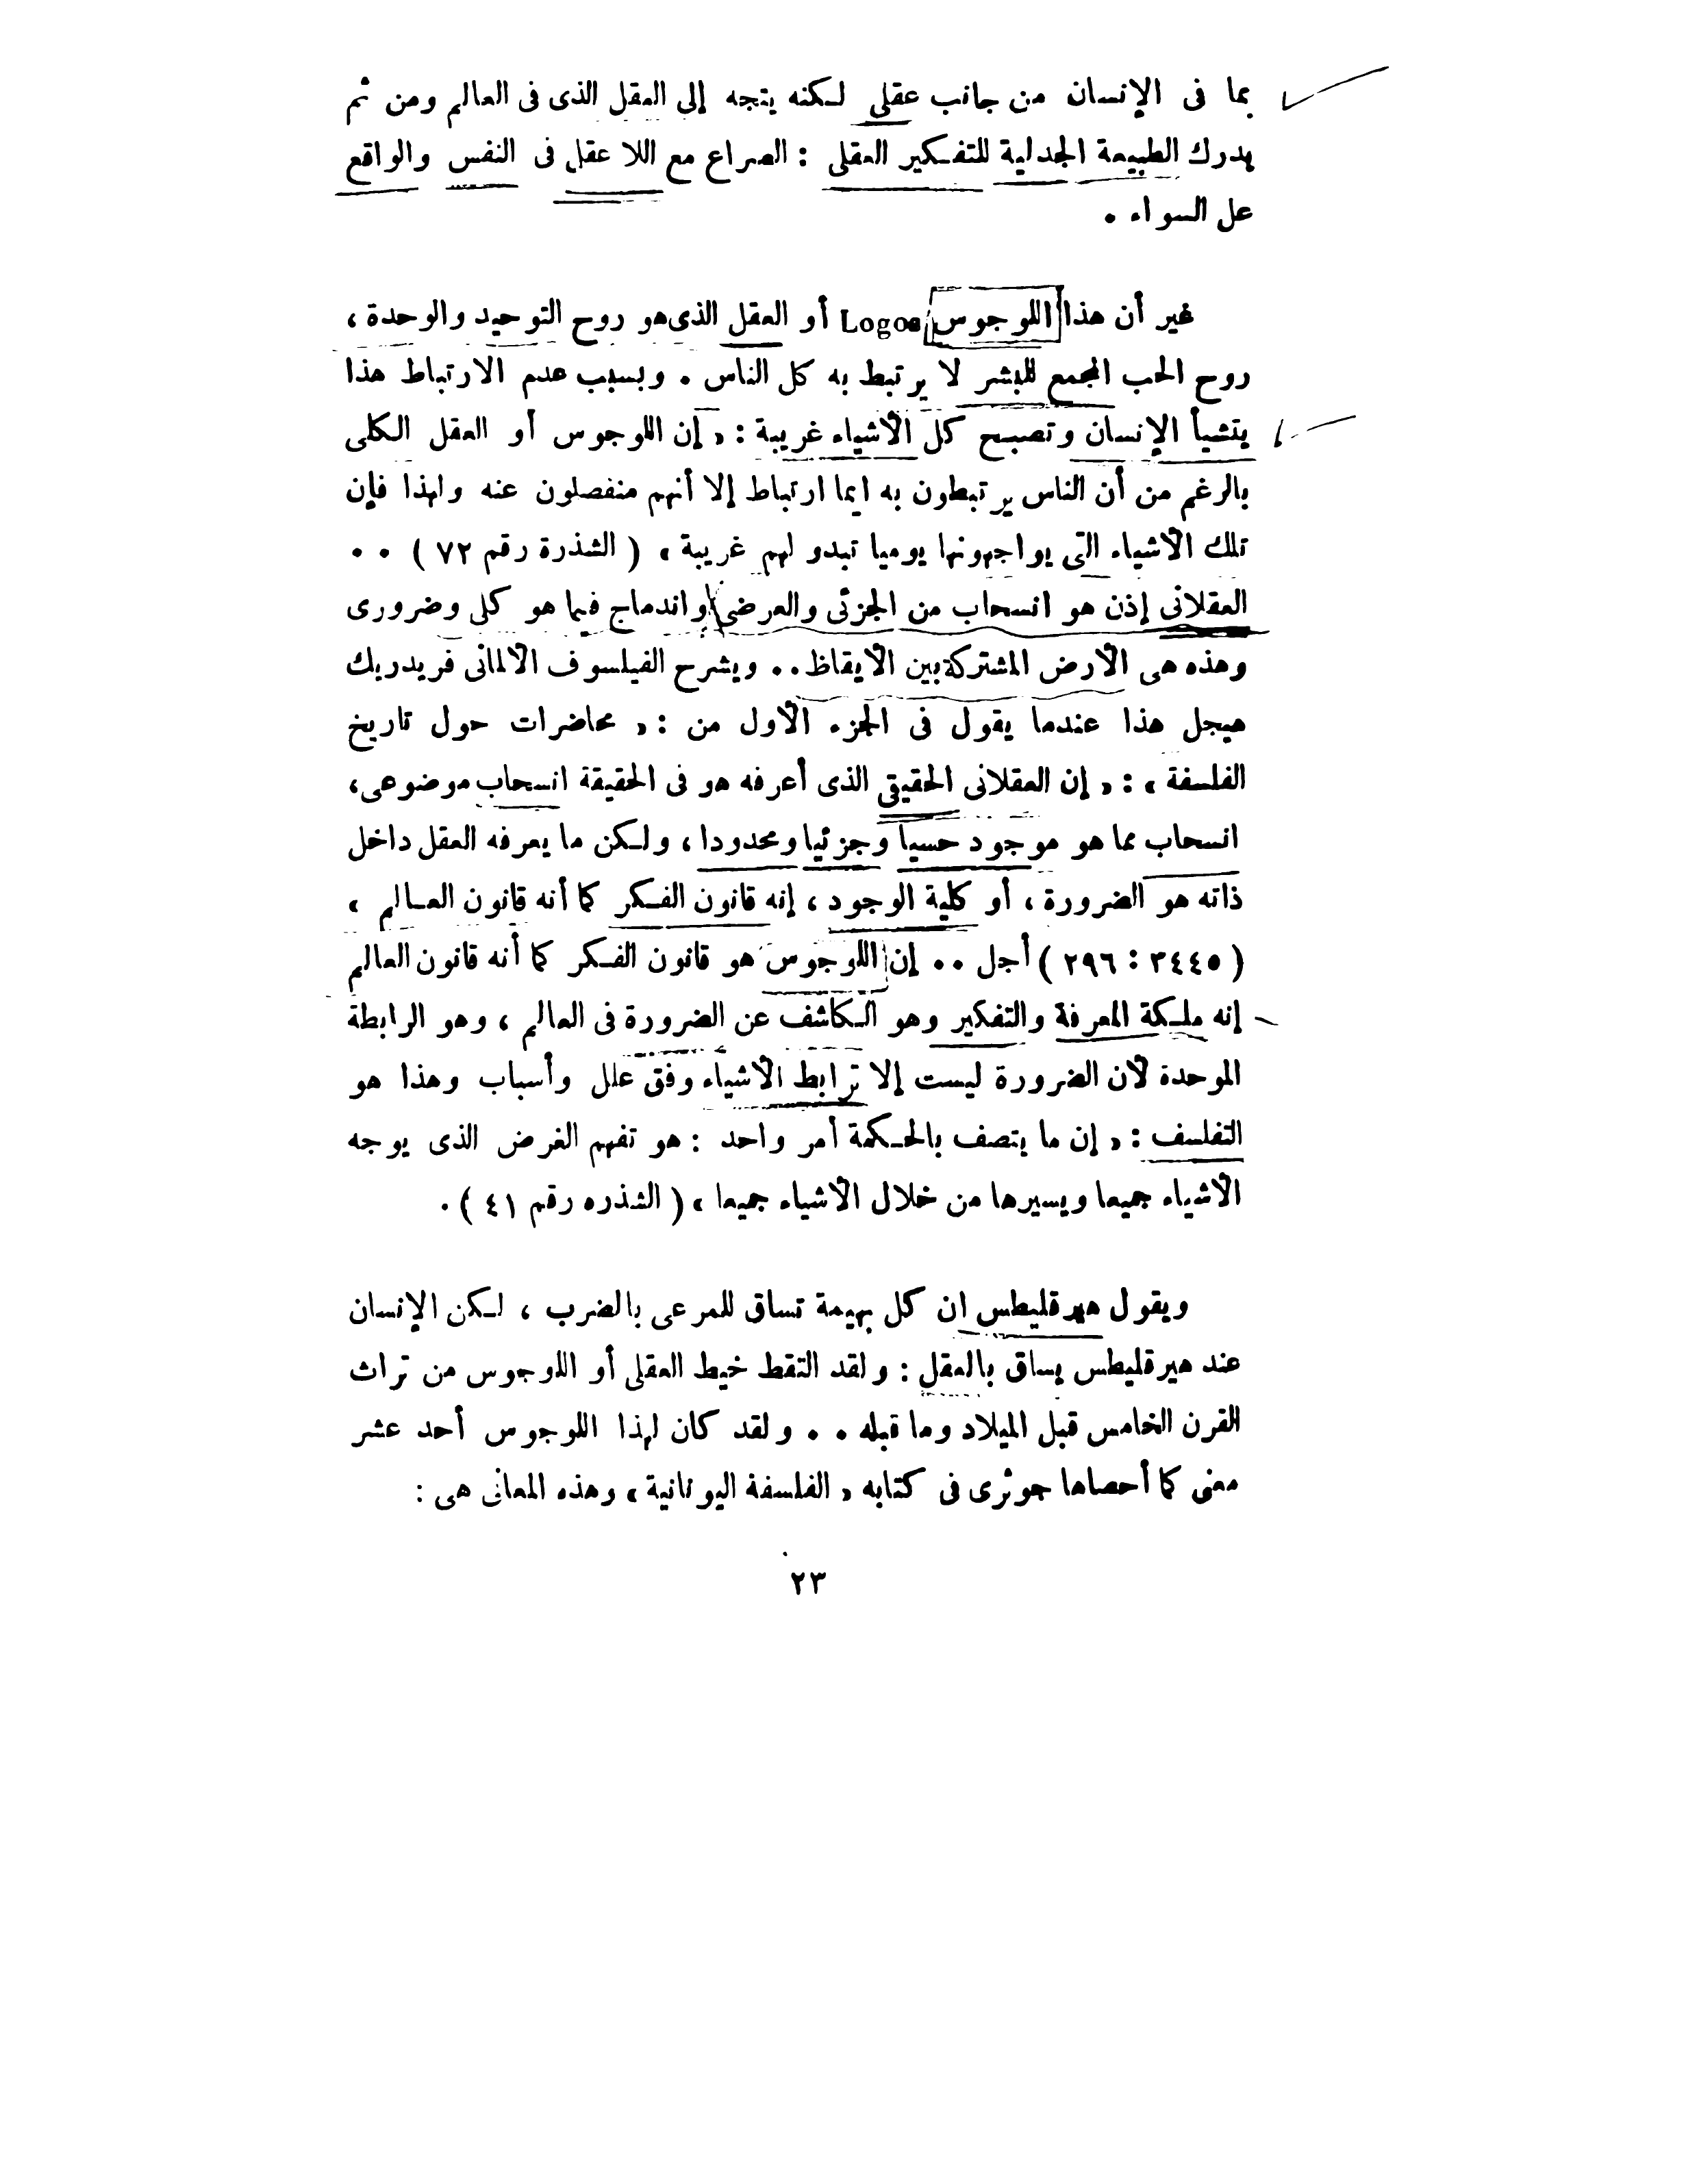 بما فى الإنسان من جانب عقلى لـكنه يتجه إلى العقل الذى فى العالم ومن ثم
يدرك الطبيعة الجدلية للتفـكير العقلى : الصراع مع اللا عقل فى النفس والواقع
عل السواء .
غير أن هذا اللوجوس Logos أو العقل الذى هو روح التوحيد والوحدة ،
روح الحب المجمع للبشر لا يرتبط به كل الناس . وبسبب عدم الارتباط هذا
يتشيأ الإنسان وتصبح كل الأشياء غريبة : « إن اللوجوس أو العقل الـكلى
بالرغم من أن الناس يرتبطون به ايما ارتباط إلا أنهم منفصلون عنه ولهذا فإن
تلك الأشياء التى يواجهونها يوميا تبدو لهم غريبة » ( الشذرة رقم ٧٢ ) . .
العقلانى إذن هو انسحاب من الجزئى والعرضى واندماج فيما هو كلى وضرورى
وهذه هى الأرض المشتركة بين الأيقاظ . . ويشرح الفيلسوف الألمانى فريدريك
هيجل هذا عندما يقول فى الجزء الأول من : « محاضرات حول تاريخ
الفلسفة » : « إن العقلانى الحقيقى الذى أعرفه هو فى الحقيقة انسحاب موضوعى،
انسحاب مما هو موجود حسيا وجزئيا ومحدودا ، ولـكن ما يعرفه العقل داخل
ذاته هو الضرورة ، أو كلية الوجود ، إنه قانون الفـكر كما أنه قانون العـالم »
( ٣٤٤٥ : ٢٩٦ ) أجل . . إن اللوجوس هو قانون الفـكر كما أنه قانون العالم
إنه ملـكة المعرفة والتفكير وهو الـكاشف عن الضرورة فى العالم ، وهو الرابطة
الموحدة لأن الضرورة ليست إلا ترابط الأشياء وفق علل وأسباب وهذا هو
التفلسف : « إن ما يتصف بالحـكمة أمر واحد : هو تفهم الغرض الذى يوجه
الأشياء جميعا ويسيرها من خلال الأشياء جميعا » ( الشذره رقم ٤١ ) .
ويقول هيرقليطس ان كل بهيمة تساق للمرعى بالضرب ، لـكن الإنسان
عند هيرقليطس يساق بالعقل : ولقد التقط خيط العقلى أو اللوجوس من تراث
القرن الخامس قبل الميلاد وما قبله . . ولقد كان لهذا اللوجوس أحد عشر
معنى كما أحصاها جوثرى فى كتابه « الفلسفة اليونانية » وهذه المعانى هى :
٢٣